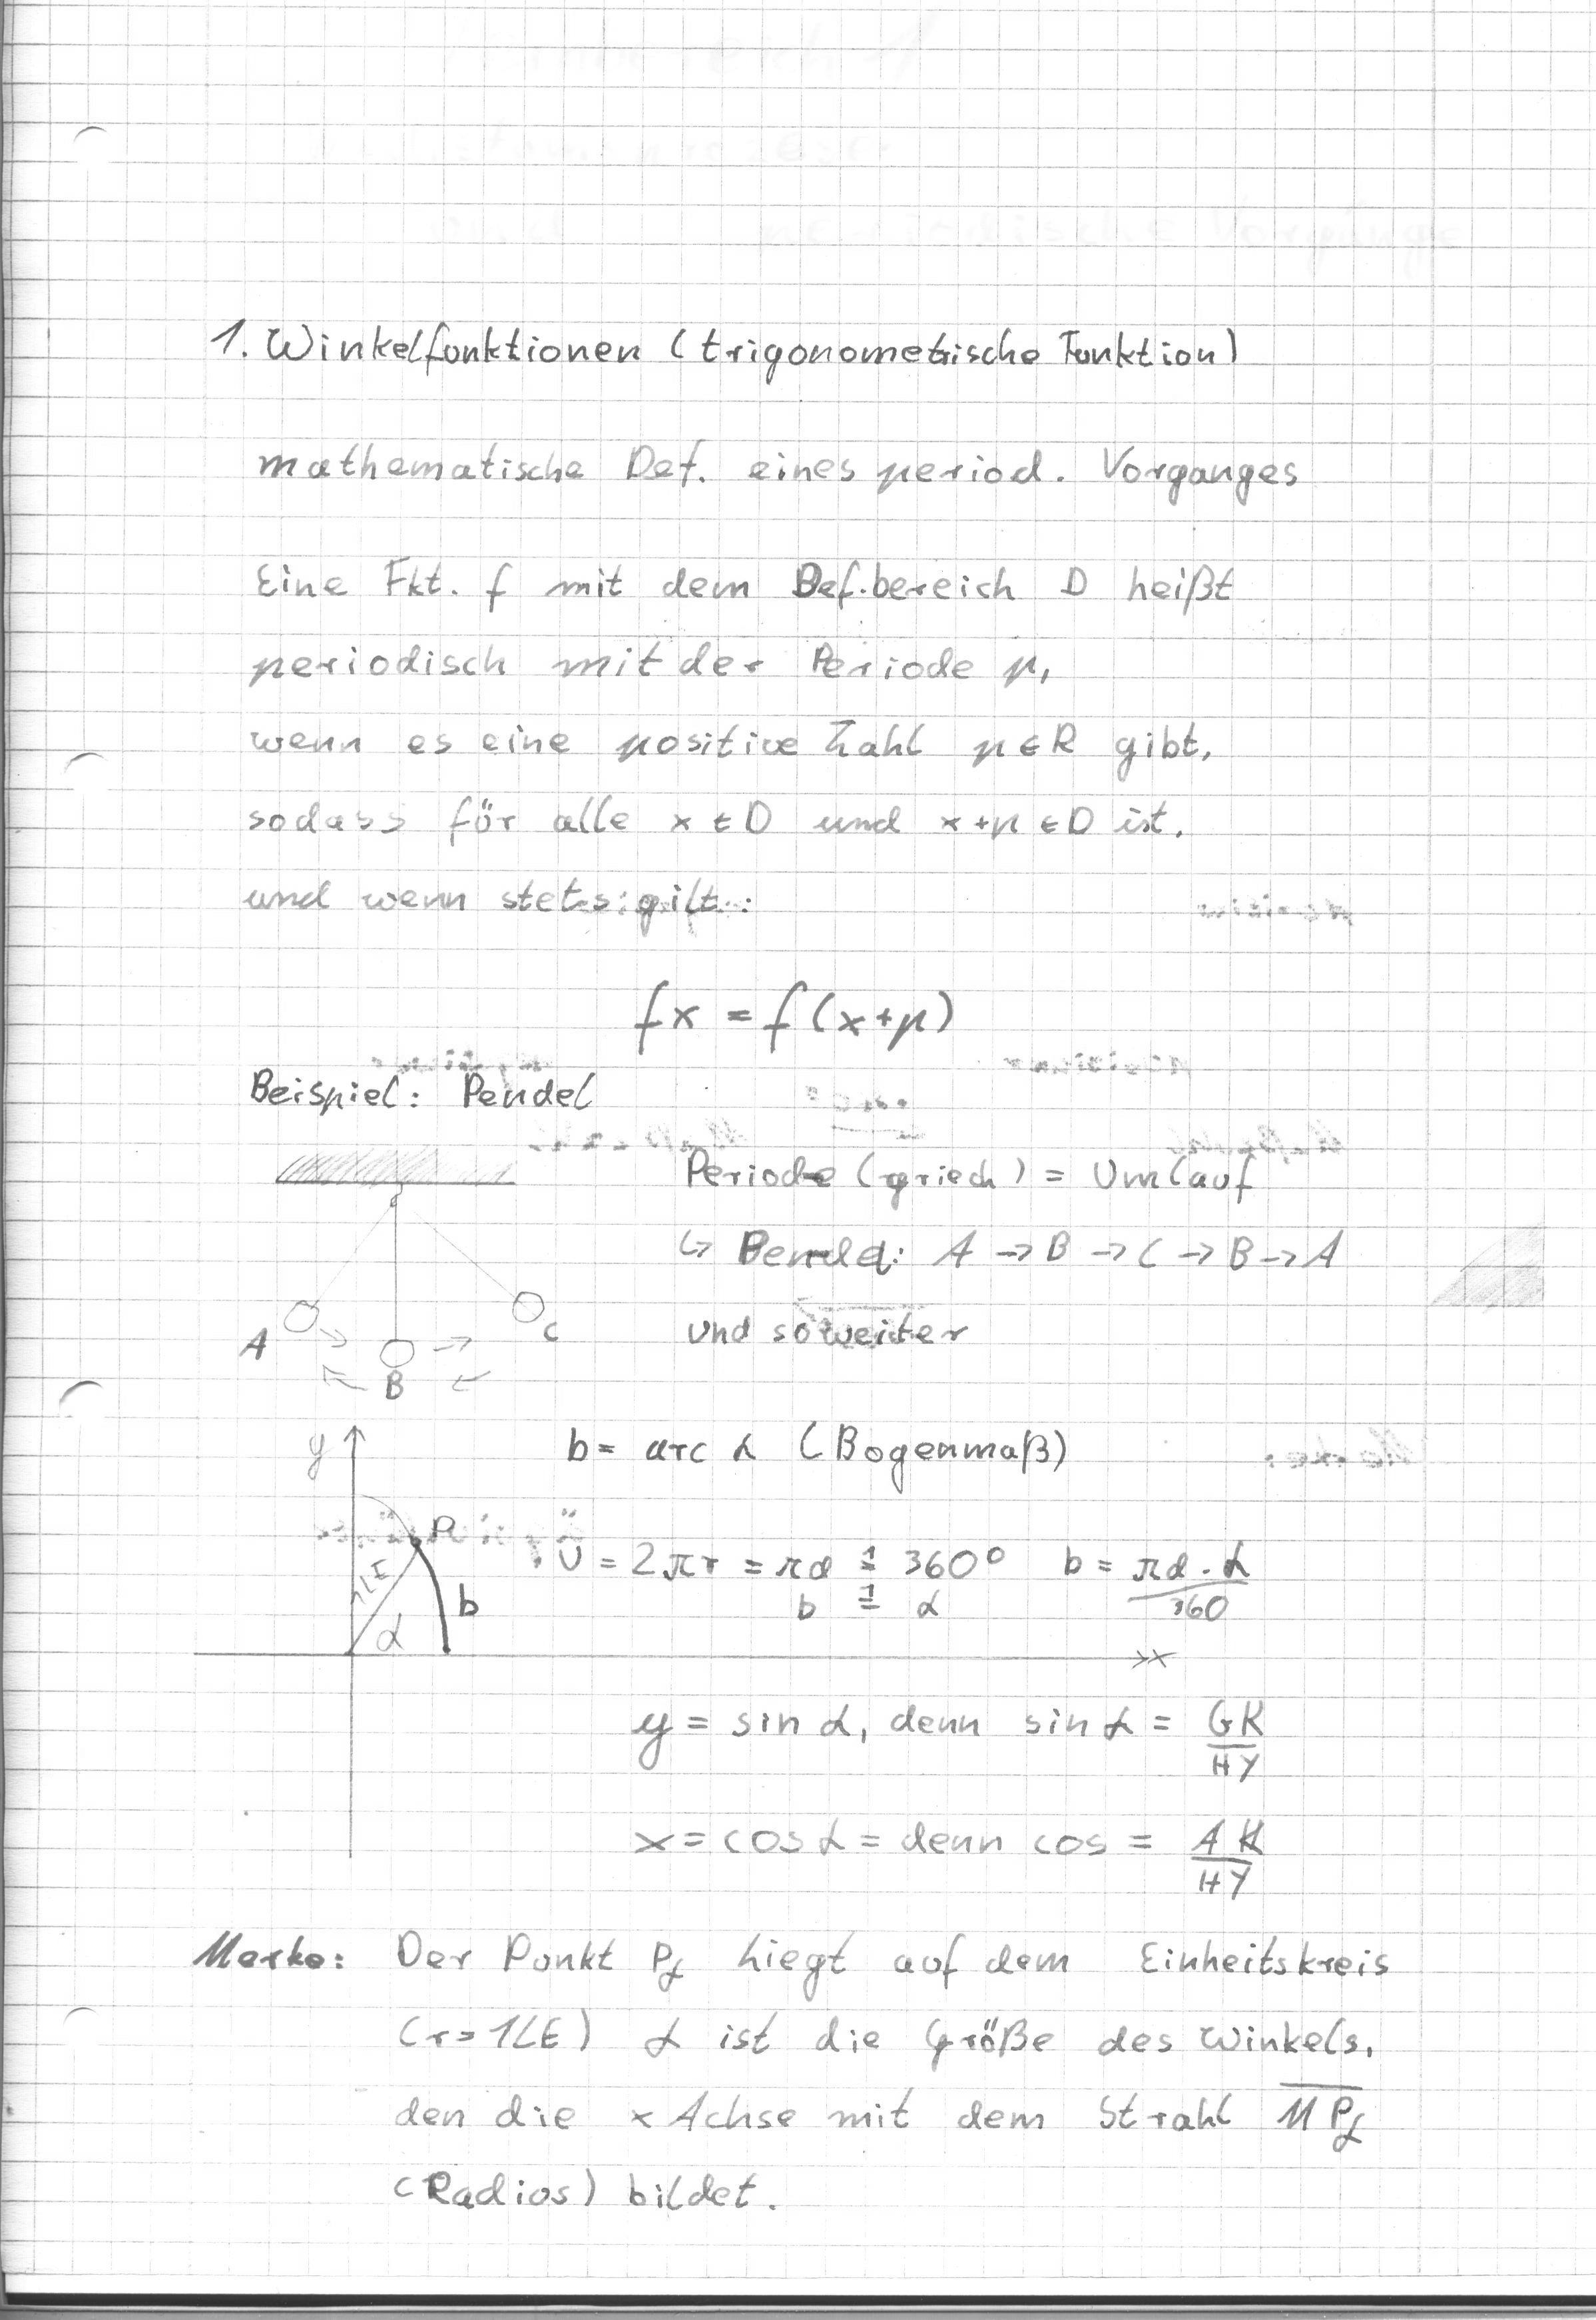 1. Winkelfunktionen (trigonometrische Funktion)
mathematische Def. eines period. Vorganges
Eine Fkt. f mit dem Def.bereich D heißt
periodisch mit der Periode p,
wenn es eine positive Zahl p ∈ R gibt,
sodass für alle x ∈ D und x+p ∈ D ist.
und wenn stets gilt:
fx = f(x+p)
Beispiel: Pendel
Periode (griech) = Umlauf
↳ Pendel: A → B → C → B → A
und so weiter
A
B
C
y
b = arc α (Bogenmaß)
P
1LE
α
b
U = 2πr = πd ≙ 360°
b ≙ α
b = πd · α
360
x
y = sin α, denn sin α = GK
HY
x = cos α = denn cos = AK
HY
Merke: Der Punkt Pα liegt auf dem Einheitskreis
(r = 1LE) α ist die Größe des Winkels,
den die x Achse mit dem Strahl MPα
(Radius) bildet.